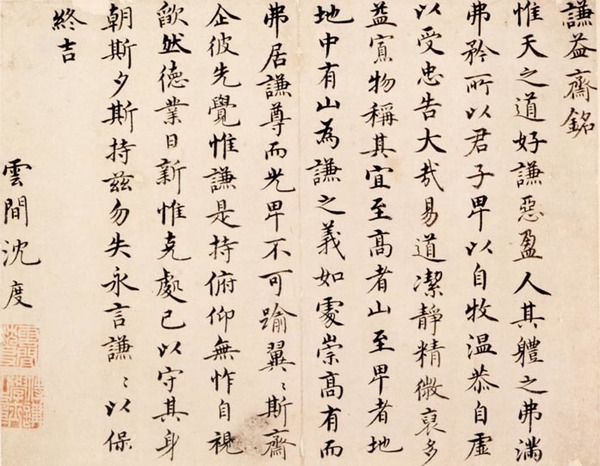 謙益齋銘
惟天之道好謙惡盈人其體之弗滿
弗矜所以君子卑以自牧溫恭自虛
以受忠告大哉易道潔靜精微裒多
益寡物稱其宜至高者山至卑者地
地中有山為謙之義如處崇高有而
弗居謙尊而光卑不可踰翼〻斯齋
企彼先覺惟謙是持俯仰無怍自視
歆然德業日新惟克處己以守其身
朝斯夕斯持茲勿失永言謙〻以保
終吉
雲間沈度